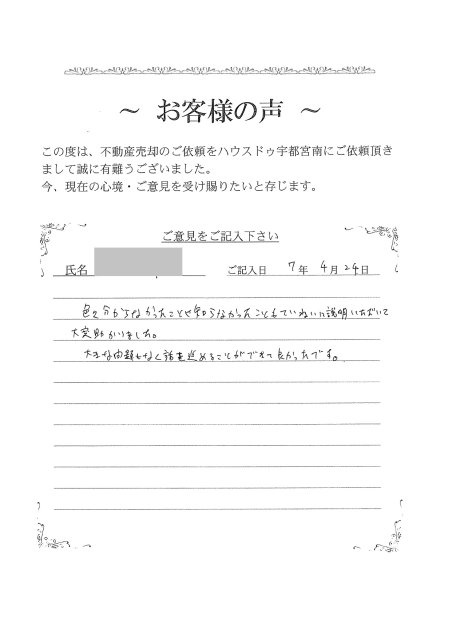 ～ お客様の声 ～
この度は、不動産売却のご依頼をハウスドゥ宇都宮南にご依頼頂き
まして誠に有難うございました。
今、現在の心境・ご意見を受け賜りたいと存じます。
ご意見をご記入下さい
氏名
ご記入日 7年 4月24日
色々分からなかったことや知らなかったこともていねいに説明いただいて
大変助かりました。
大きな問題もなく話を進めることができて良かったです。